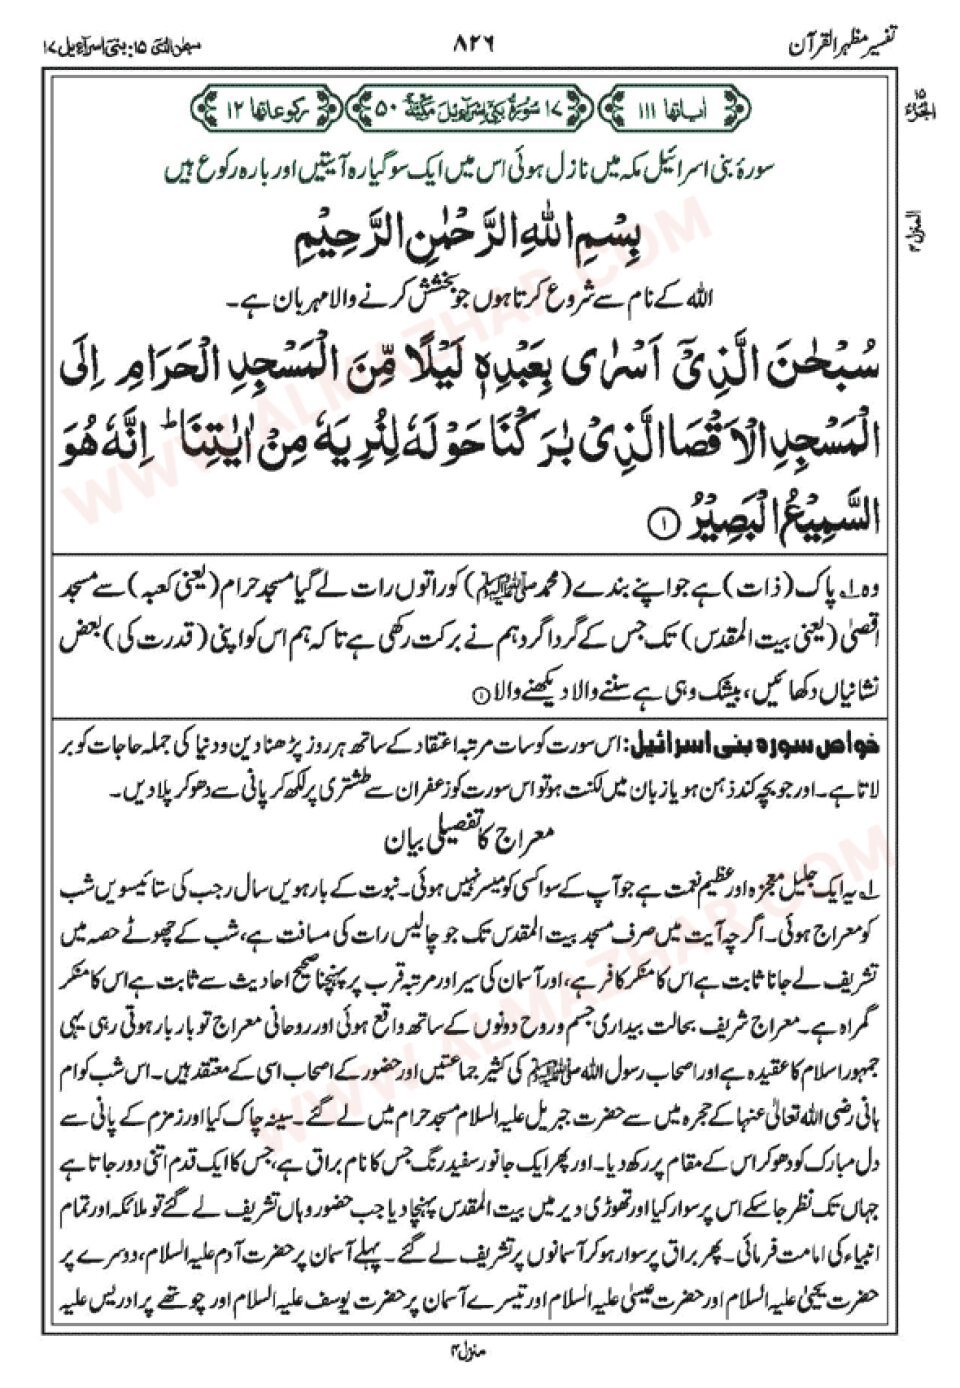 تفسیر مظہر القرآن
۸۲۶
سبحٰن الذی ۱۵: بنی اسرآءیل ۱۷
الجزء ۱۵
المنزل ۴
اٰیاتها ۱۱۱
۱۷ سُوْرَةُ بَنِیْۤ اِسْرَآءِیْلَ مَكِّیَّةٌ ۵۰
رکوعاتها ۱۲
سورۂ بنی اسرائیل مکہ میں نازل ہوئی اس میں ایک سو گیارہ آیتیں اور بارہ رکوع ہیں
بِسْمِ اللهِ الرَّحْمٰنِ الرَّحِیْمِ
اللہ کے نام سے شروع کرتا ہوں جو بخشش کرنے والا مہربان ہے۔
سُبْحٰنَ الَّذِیْۤ اَسْرٰى بِعَبْدِهٖ لَیْلًا مِّنَ الْمَسْجِدِ الْحَرَامِ اِلَى
الْمَسْجِدِ الْاَقْصَا الَّذِیْ بٰرَكْنَا حَوْلَهٗ لِنُرِیَهٗ مِنْ اٰیٰتِنَا ؕ اِنَّهٗ هُوَ
السَّمِیْعُ الْبَصِیْرُ ①
وہ ۱؎ پاک (ذات) ہے جو اپنے بندے (محمد ﷺ) کو راتوں رات لے گیا مسجد حرام (یعنی کعبہ) سے مسجد
اقصیٰ (یعنی بیت المقدس) تک جس کے گردا گرد ہم نے برکت رکھی ہے تاکہ ہم اس کو اپنی (قدرت کی) بعض
نشانیاں دکھائیں، بیشک وہی ہے سننے والا دیکھنے والا ①
خواص سورہ بنی اسرائیل: اس سورت کو سات مرتبہ اعتقاد کے ساتھ ہر روز پڑھنا دین و دنیا کی جملہ حاجات کو بر
لاتا ہے۔ اور جو بچہ کند ذہن ہو یا زبان میں لکنت ہو تو اس سورت کو زعفران سے طشتری پر لکھ کر پانی سے دھو کر پلا دیں۔
معراج کا تفصیلی بیان
۱؎ یہ ایک جلیل معجزہ اور عظیم نعمت ہے جو آپ کے سوا کسی کو میسر نہیں ہوئی۔ نبوت کے بارہویں سال رجب کی ستائیسویں شب
کو معراج ہوئی۔ اگرچہ آیت میں صرف مسجد بیت المقدس تک جو چالیس رات کی مسافت ہے، شب کے چھوٹے حصہ میں
تشریف لے جانا ثابت ہے اس کا منکر کافر ہے، اور آسمان کی سیر اور مرتبہ قرب پر پہنچنا صحیح احادیث سے ثابت ہے اس کا منکر
گمراہ ہے۔ معراج شریف بحالت بیداری جسم و روح دونوں کے ساتھ واقع ہوئی اور روحانی معراج تو بار بار ہوتی رہی یہی
جمہور اسلام کا عقیدہ ہے اور اصحاب رسول اللہ ﷺ کی کثیر جماعتیں اور حضور کے اصحاب اسی کے معتقد ہیں۔ اس شب کو ام
ہانی رضی اللہ تعالیٰ عنہا کے حجرہ میں سے حضرت جبریل علیہ السلام مسجد حرام میں لے گئے۔ سینہ چاک کیا اور زمزم کے پانی سے
دل مبارک کو دھو کر اس کے مقام پر رکھ دیا۔ اور پھر ایک جانور سفید رنگ جس کا نام براق ہے، جس کا ایک قدم اتنی دور جاتا ہے
جہاں تک نظر جا سکے اس پر سوار کیا اور تھوڑی دیر میں بیت المقدس پہنچا دیا جب حضور وہاں تشریف لے گئے تو ملائکہ اور تمام
انبیاء کی امامت فرمائی۔ پھر براق پر سوار ہو کر آسمانوں پر تشریف لے گئے۔ پہلے آسمان پر حضرت آدم علیہ السلام، دوسرے پر
حضرت یحییٰ علیہ السلام اور حضرت عیسیٰ علیہ السلام اور تیسرے آسمان پر حضرت یوسف علیہ السلام اور چوتھے پر ادریس علیہ
منزل ۴
WWW.ALMAZHAR.COM
WWW.ALMAZHAR.COM